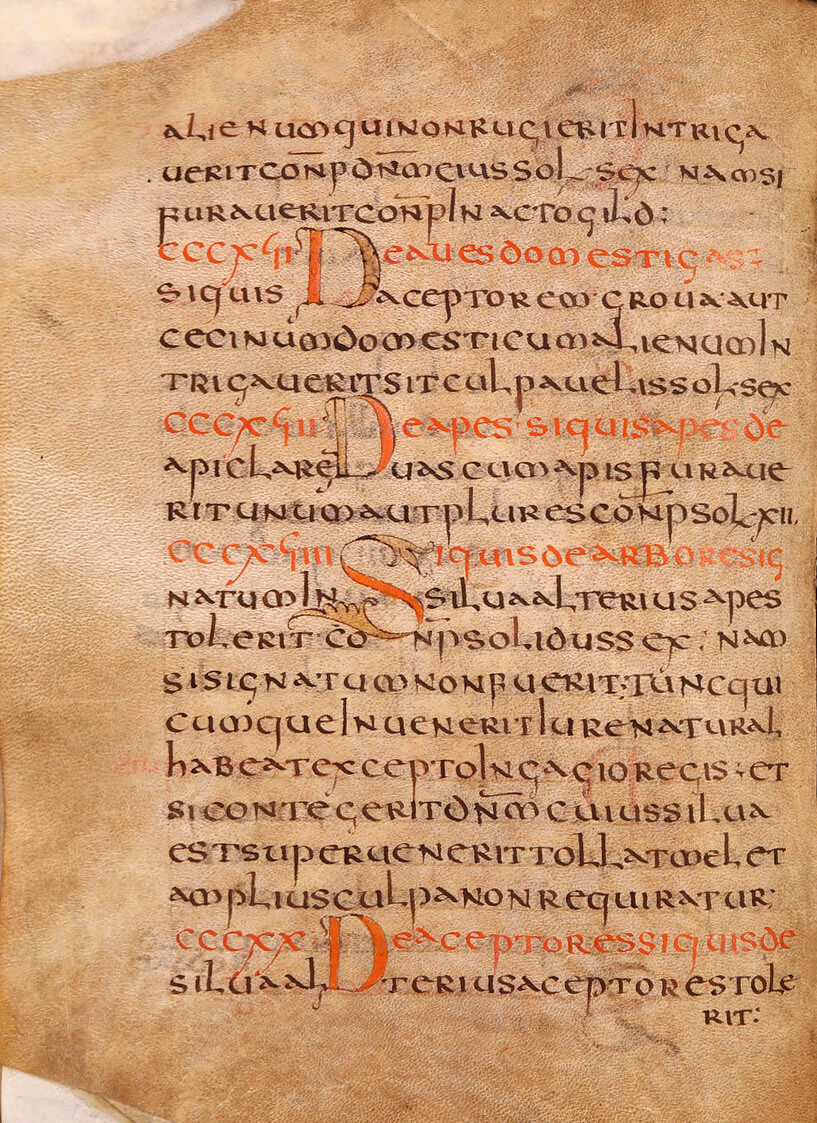 alienum qui non rugierit In triga
uerit conp dnm eius sol· sex· Nam si
furauerit conp In actogild:
CCCXVII De aues domesticas:
Si quis aceptorem· groua· aut
cecinum domesticum alienum In
trigauerit sit culpauelis sol· sex
CCCXVIII De apes· Si quis apes de
apiclare uas cum apis furaue
rit unum aut plures conp sol· XII,
CCCXVIIII Si quis de arbore sig
natum In silua alterius apes
tolerit· conp solidus sex: Nam
si signatum non fuerit; tunc qui
cumque Inuenerit Iure natural,
habeat excepto In gagio regis; et
si contegerit dnm cuius silua
est superuenerit tollat mel, et
amplius culpa non requiratur;
CCCXX De aceptores si quis de
silua alterius aceptores tole
rit: